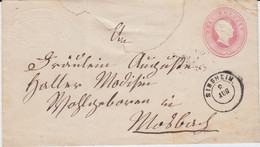 An
Fräulein Auguste
Haller Modistin
Wohlgeboren in
Mosbach
SINSHEIM
9